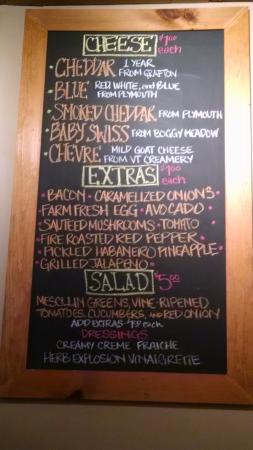 CHEESE $1.00 each
CHEDDAR 1 YEAR FROM GRAFTON
BLUE RED, WHITE, AND BLUE FROM PLYMOUTH
SMOKED CHEDDAR FROM PLYMOUTH
BABY SWISS FROM BOGGY MEADOW
CHEVRÉ MILD GOAT CHEESE FROM VT CREAMERY
EXTRAS $1.00 each
• BACON • CARAMELIZED ONIONS
• FARM FRESH EGG • AVOCADO
• SAUTEED MUSHROOMS • TOMATO
• FIRE ROASTED RED PEPPER
• PICKLED HABANERO PINEAPPLE
• GRILLED JALAPENO
SALAD $5.00
MESCLUN GREENS, VINE-RIPENED
TOMATOES, CUCUMBERS, AND RED ONION
ADD EXTRAS each
DRESSINGS
CREAMY CREME FRAICHE
HERB EXPLOSION VINAIGRETTE